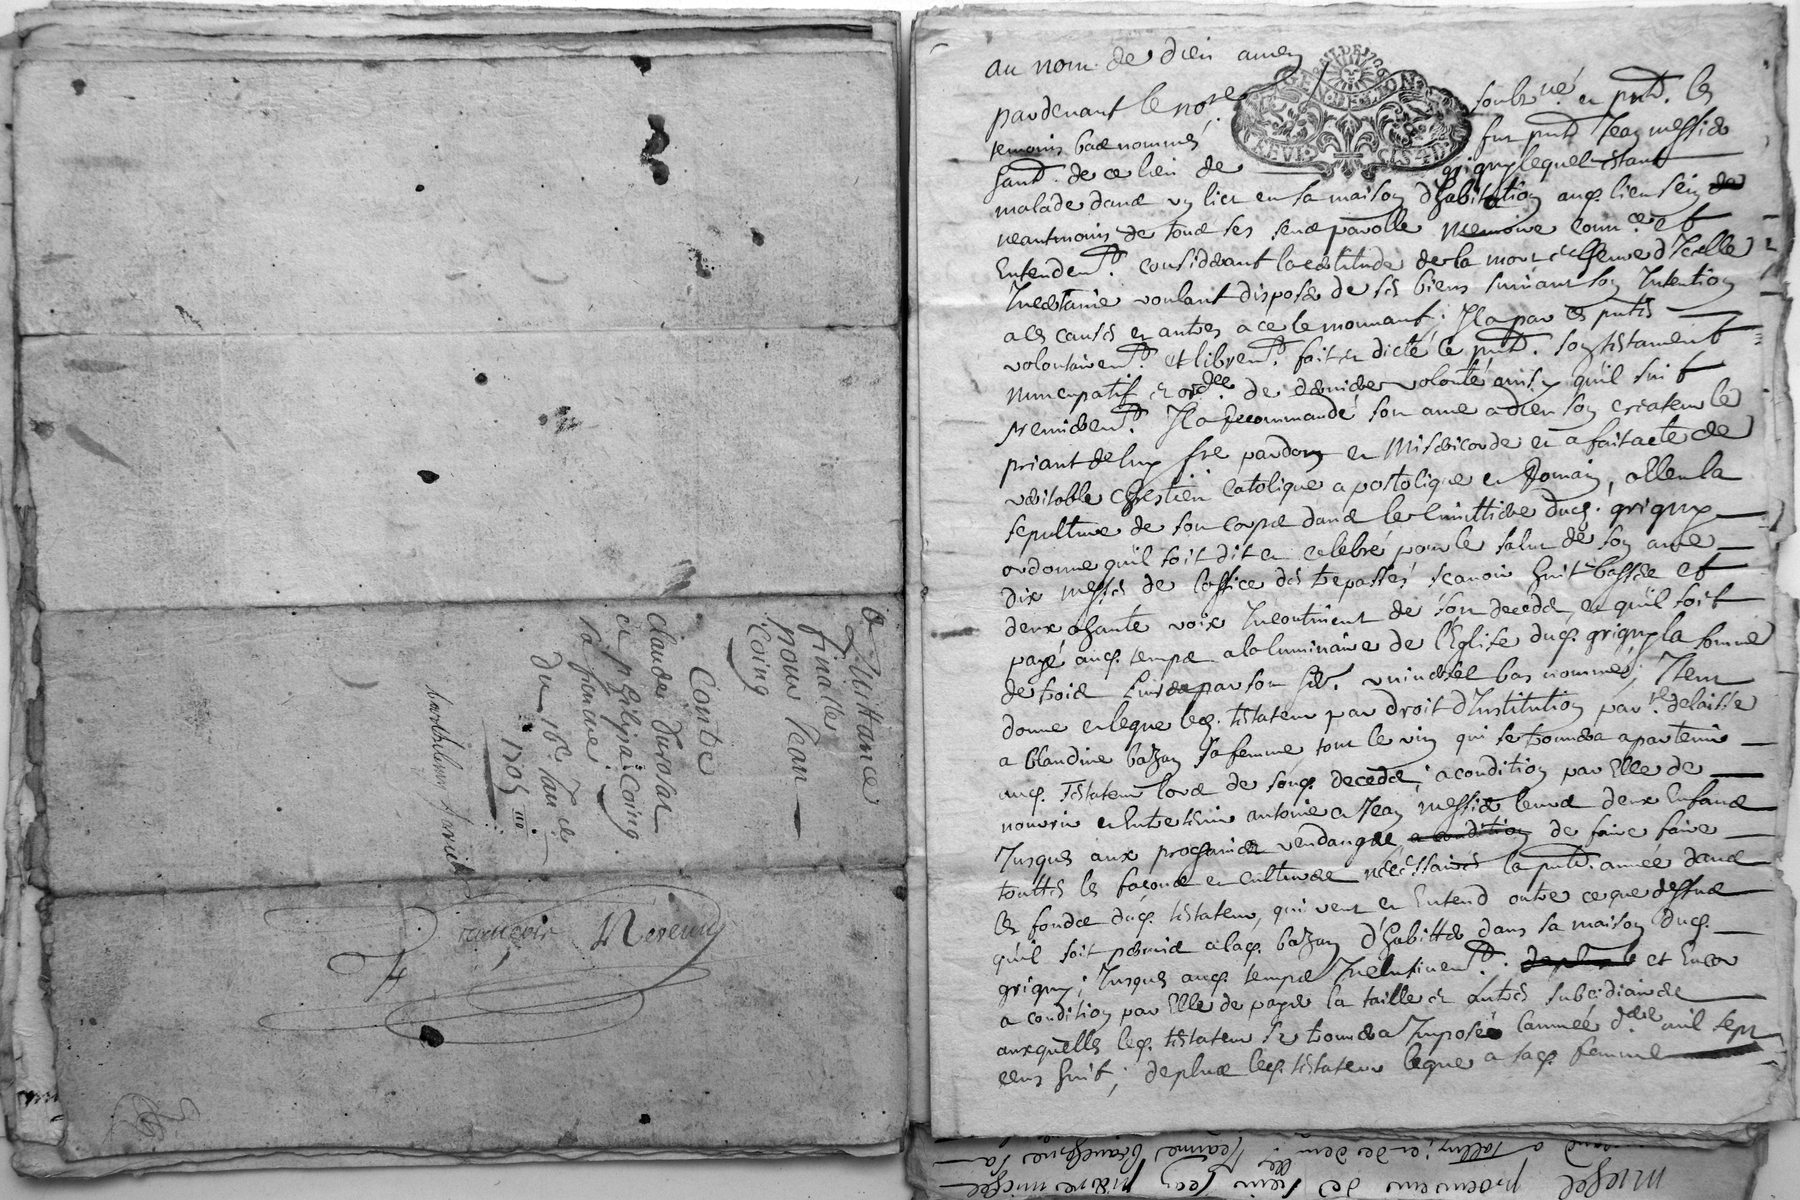 Quittance
finalle
pour Jean
Coing
Contre
claude Durosat
et philipa Coing
sa femme
Du 16e Jan er
1705
barthelemy
francois
au nom de dieu amen
pardevant le no.re soubz né et pnt. les
temoins bas nommés fut pnt Jean messier
hant. de ce lieu de grigny lequel estant
malade dans un lict en sa maison d'habitation aud. lieu sein
neantmoins de tous ses sens parolle memoire conn.ce et
Entendem.t considerant la certitude de la mort et l'heure d'Icelle
Incertaine voulant disposer de ses biens suivant son Intention
a ces causes et autres a ce le mouvant; Il a par ces pntes
volontairem.t et librem.t fait et dicté le pnt. son testament
nuncupatif et ord.ce de derniere volonté ainsy qu'il suit
premierem.t Il a Recommandé son ame a dieu son createur le
priant de luy fre pardon et Misericorde et a fait acte de
veritable chrestien catolique apostolique et Romain, elleu la
sepulture de son corps dans le simittiere dud. grigny
ordonne qu'il soit dit et celebré pour le salut de son ame
dix messes de l'office des trepassés scavoir huit basses et
deux a haute voix Incontinent de son decéder, et qu'il soit
payé aud. temps a la luminaire de l'Eglise dud. grigny la somme
de trois livres par son hér. universel bas nommé; Item
donne et legue led. testateur par droit d'Institution par.re delaisse
a blandine bazan sa femme tout le vin qui se trouvera apartenir
aud. testateur lors de sond. decedé; a condition par Elle de
nourrir et Entretenir antoine et Jean messier leurs deux Enfans
Jusques aux prochaines vendanges a condition de faire faire
touttes les façons et cultures nécéssaires la pnte. année dans
les fonds dud. testateur, qui veut et Entend outre ce que dessus
qu'il soit permis a lad. bazan d'habitter dans sa maison dud.
grigny; Jusques aud. temps Inclusivem.t. et Encor
a condition par Elle de payer la taille et autres subcidiaires
auxquelles led. testateur se trouvera Imposé l'année d.re mil sept
cens huit; de plus led. testateur legue a sad. femme